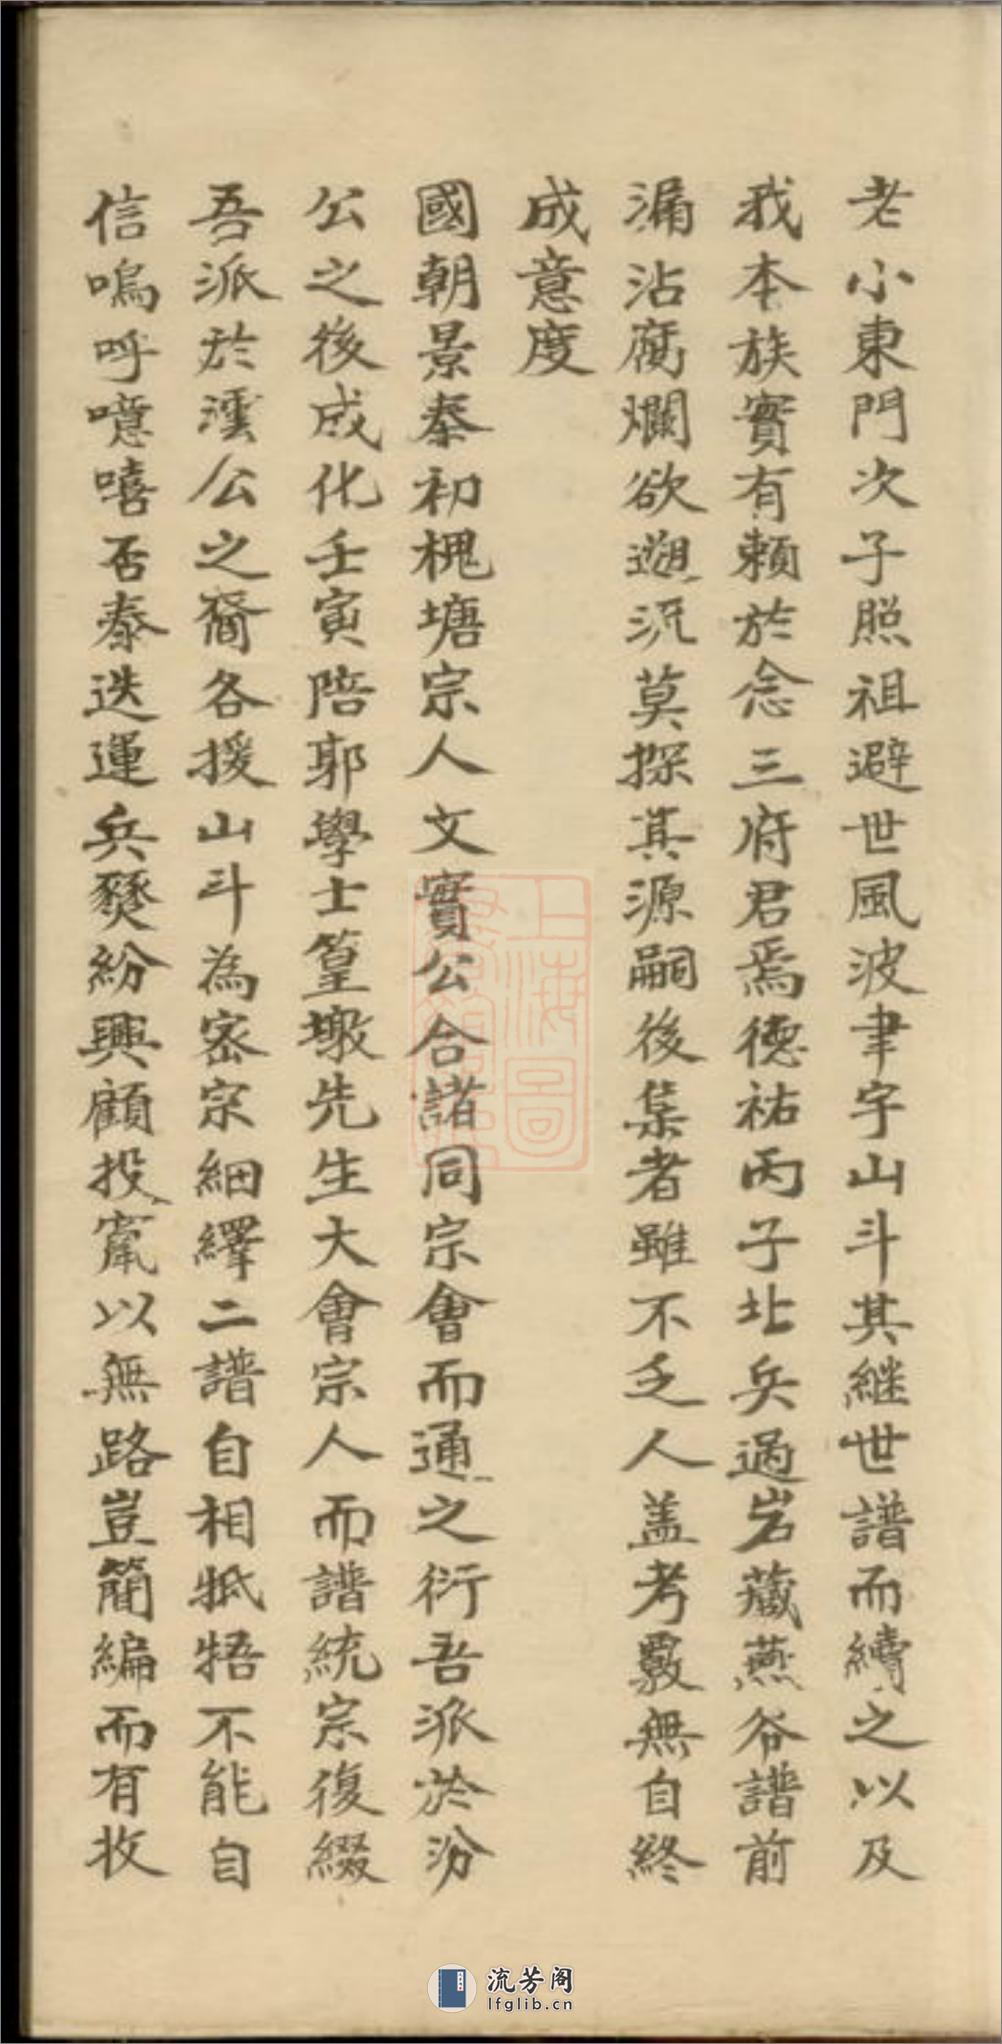 老小東門次子照祖避世風波聿字山斗其継世譜而續之以及
我本族實有頼於念三府君焉德祐丙子北兵過岩藏燕谷譜前
漏沾腐爛欲遡況莫探其源嗣後集者雖不乏人盖考覈無自終
成意度
國朝景泰初槐塘宗人文實公合諸同宗會而通之衍吾派於汾
公之後成化壬寅陪郭學士篁墩先生大會宗人而譜統宗復綴
吾派於澐公之裔各援山斗為密宗細繹二譜自相牴牾不能自
信嗚呼噫嘻否泰迭運兵燹紛興顧投竄以無路豈簡編而有收
上海圖
流芳阁
lfglib.cn